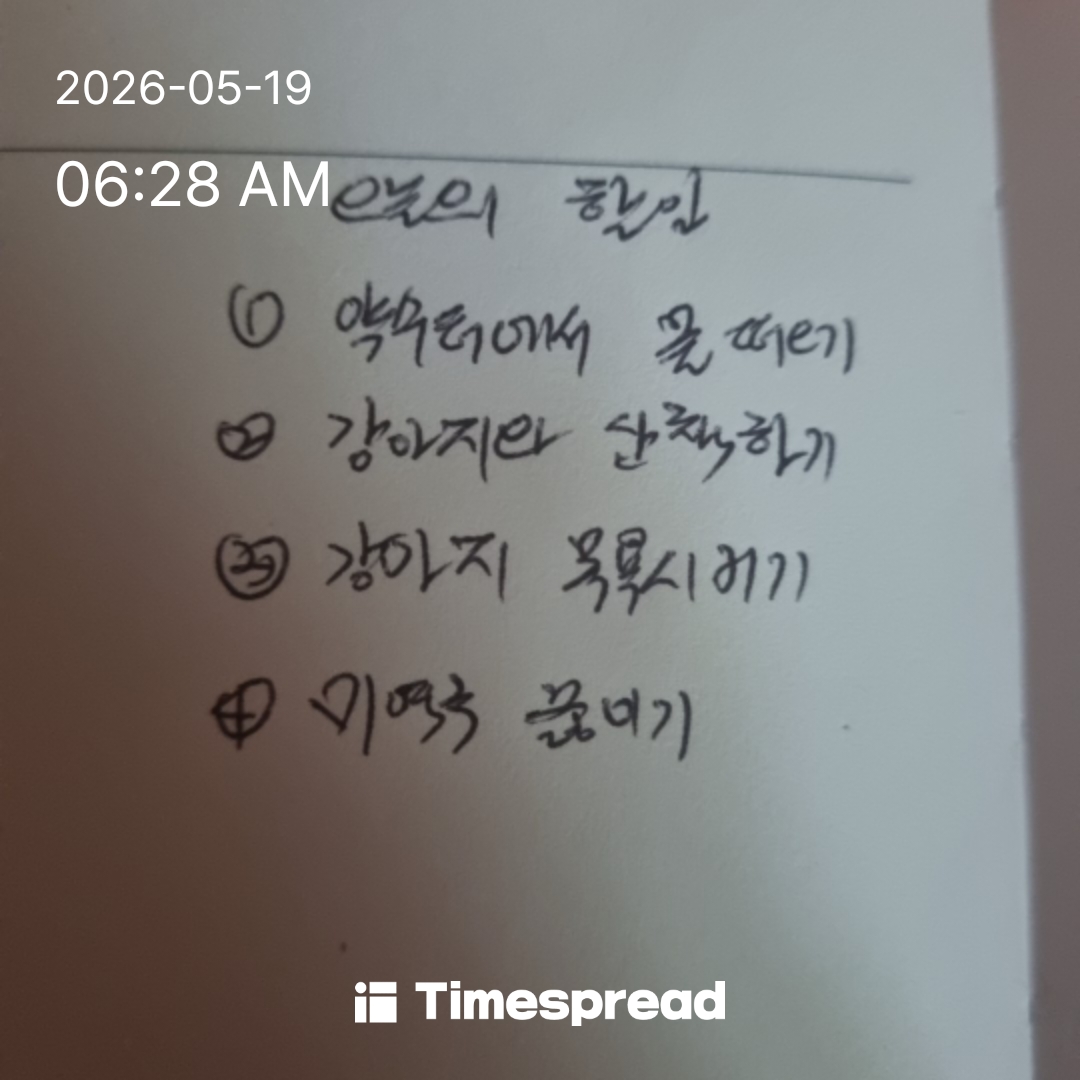 2026-05-19
06:28 AM
오늘의 할일
① 약수터에서 물 떠오기
② 강아지와 산책하기
③ 강아지 목욕시키기
④ 미역국 끓이기
Timespread